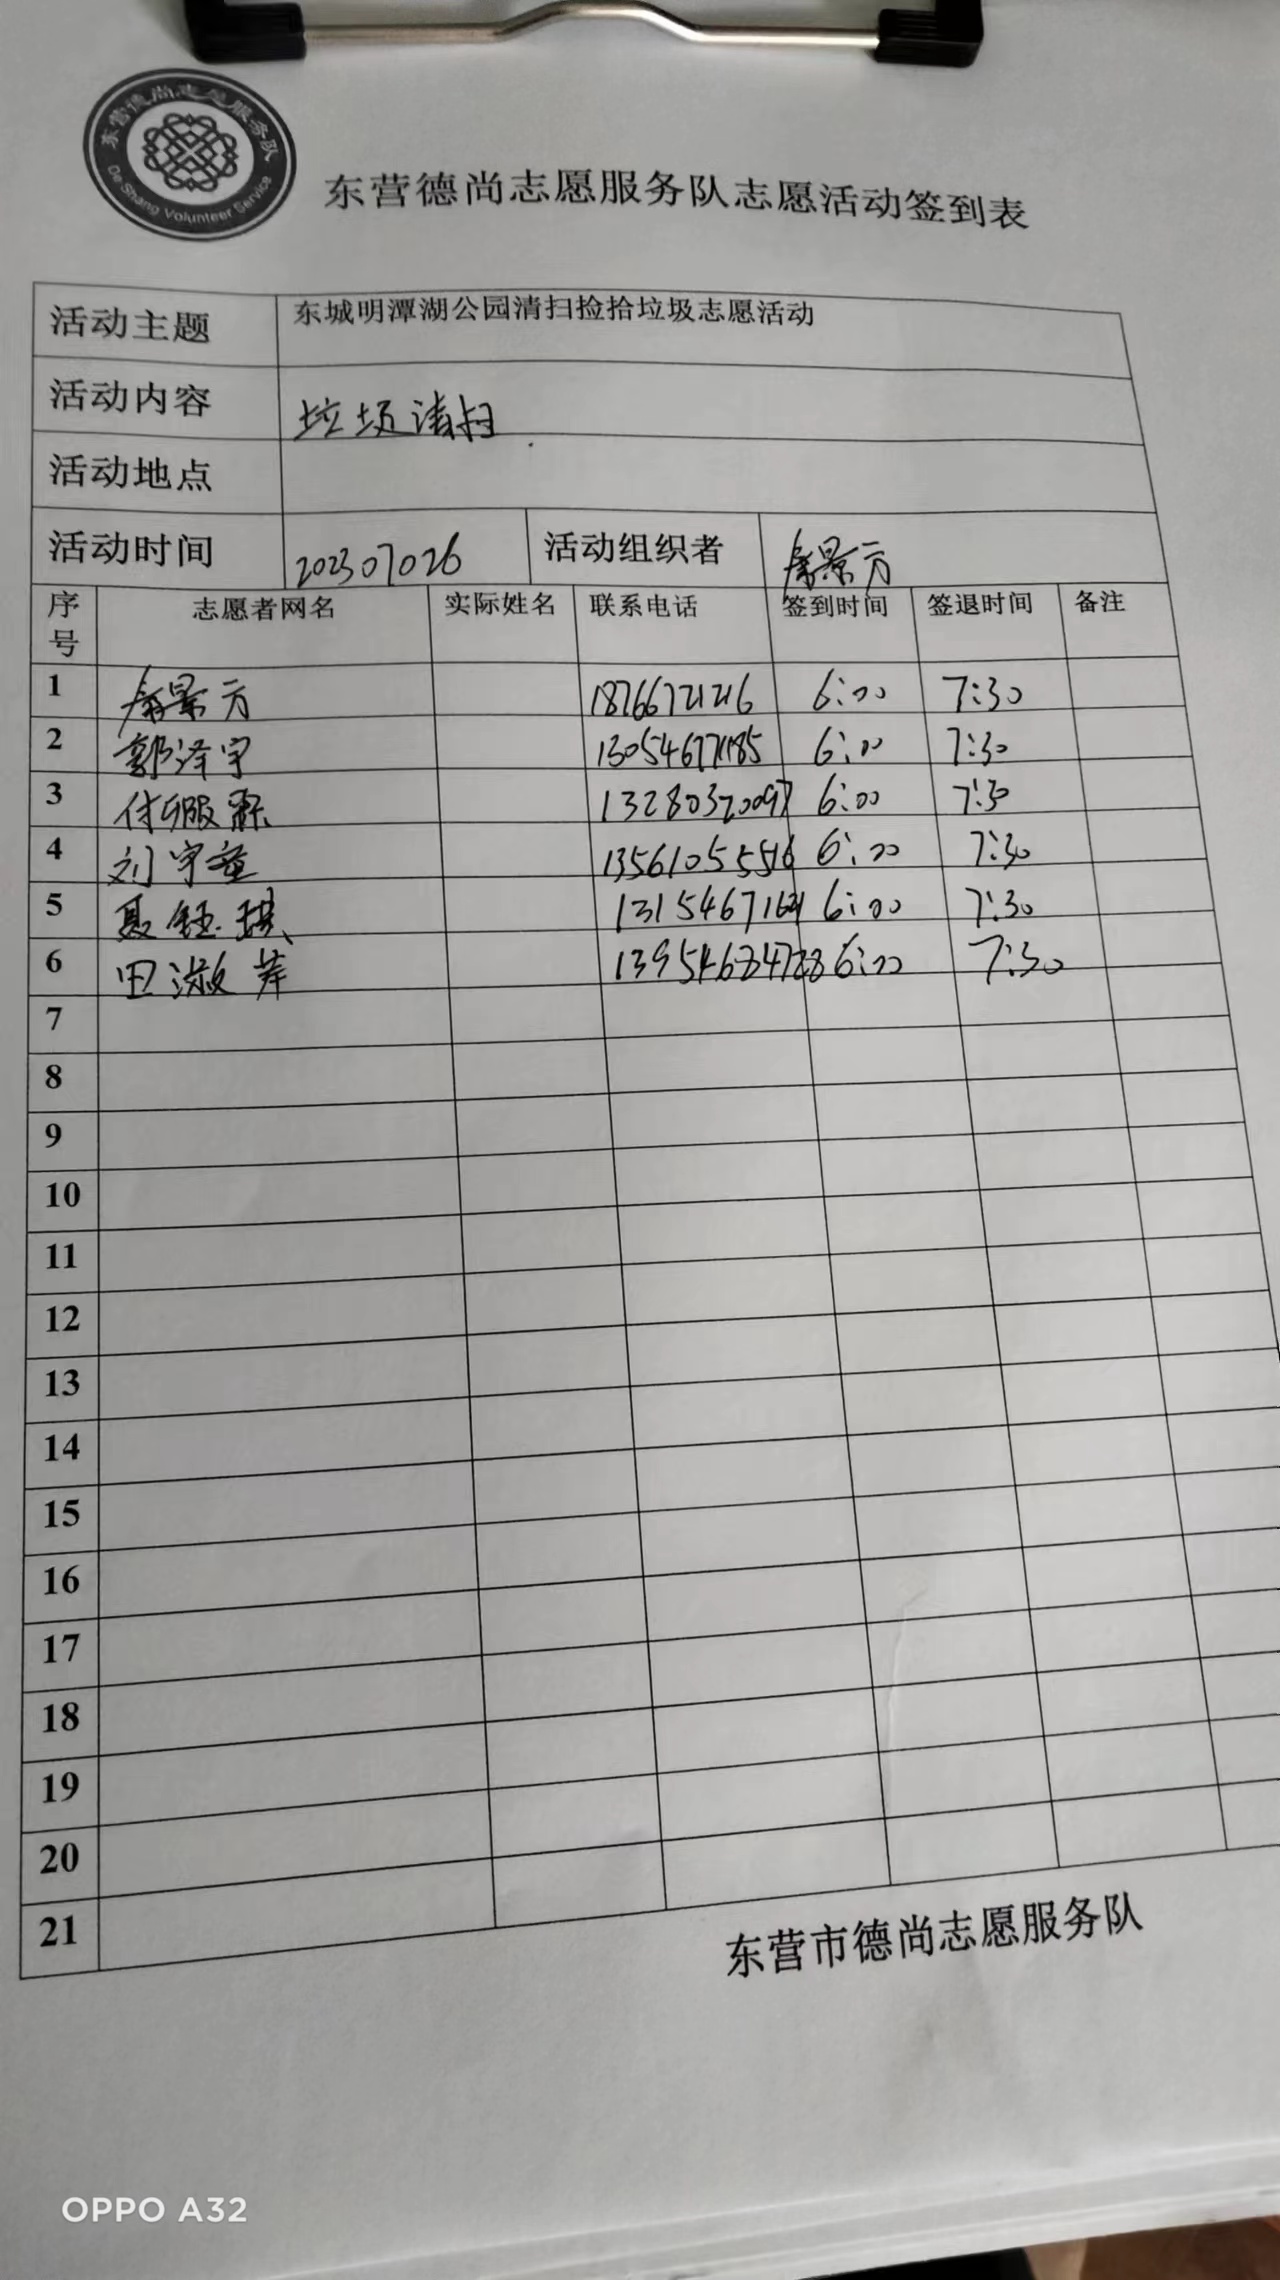 东营德尚志愿服务队
De Shang Volunteer Service
东营德尚志愿服务队志愿活动签到表
活动主题 东城明潭湖公园清扫捡拾垃圾志愿活动
活动内容 垃圾清扫
活动地点
活动时间 202307026 活动组织者 景方
序号 志愿者网名 实际姓名 联系电话 签到时间 签退时间 备注
1 景方 18766721216 6:00 7:30
2 郭泽宇 6:00 7:30
3 付 13280320097 6:00 7:30
4 刘宇童 13561055516 6:00 7:30
5 聂钰琪 6:00 7:30
6 田淑萍 13954684728 6:00 7:30
7
8
9
10
11
12
13
14
15
16
17
18
19
20
21
东营市德尚志愿服务队
OPPO A32